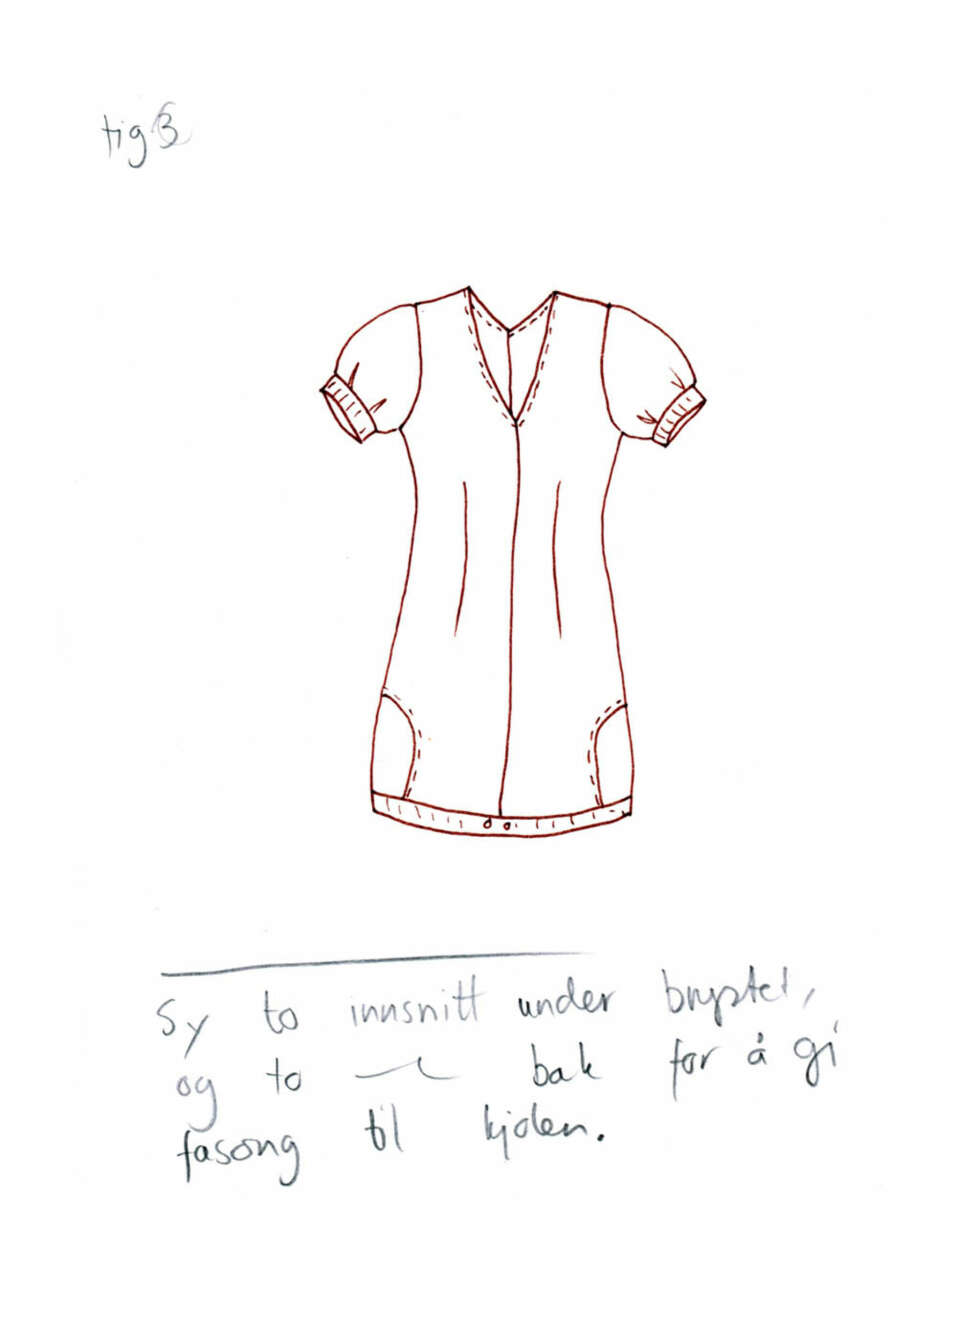 fig 3
Sy to innsnitt under brystet,
og to —〃— bak for å gi
fasong til kjolen.